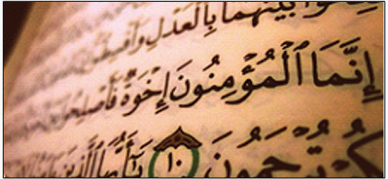 بَيْنَهُمَا بِالْعَدْلِ وَأَقْسِطُوا
إِنَّمَا الْمُؤْمِنُونَ إِخْوَةٌ فَأَصْلِحُوا
تُرْحَمُونَ ١٠ يَا أَيُّهَا الَّذِينَ